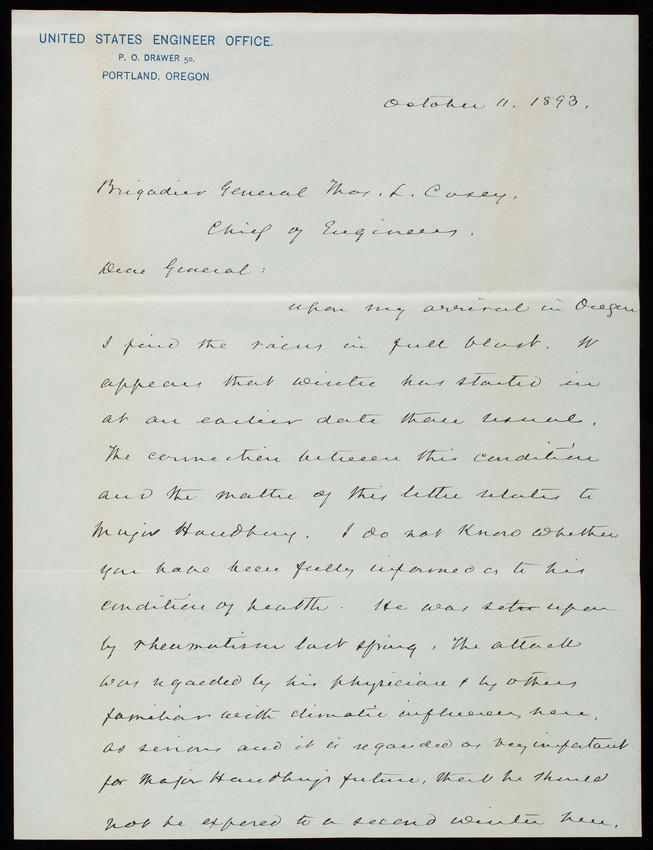 UNITED STATES ENGINEER OFFICE.
P. O. DRAWER 50.
PORTLAND, OREGON
October 11. 1893.
Brigadier General Thos. L. Casey.
Chief of Engineers.
Dear General:
Upon my arrival in Oregon
I find the rains in full blast. It
appears that winter has started in
at an earlier date than usual.
The connection between this condition
and the matter of this letter relates to
Major Handbury. I do not know whether
you have been fully informed as to his
condition of health. He was set upon
by rheumatism last spring. The attack
was regarded by his physician & by others
familiar with climatic influences here,
as serious and it is regarded as very important
for Major Handbury's future, that he should
not be exposed to a second winter here.